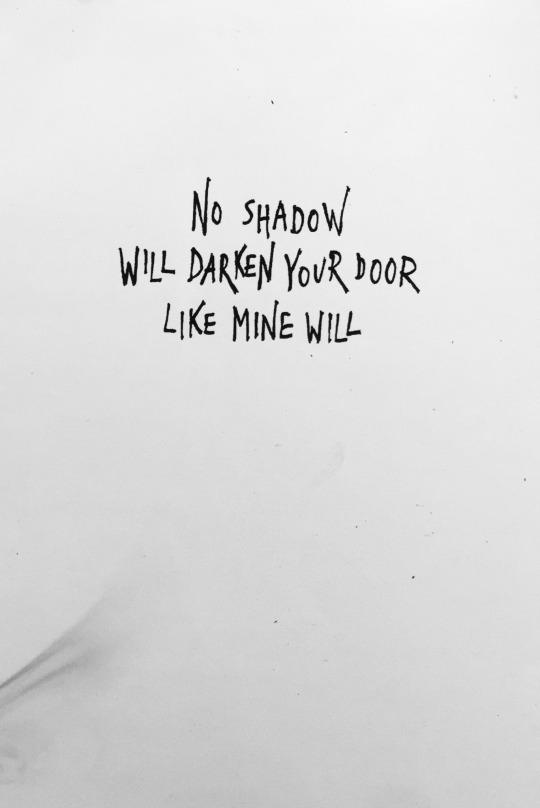 NO SHADOW
WILL DARKEN YOUR DOOR
LIKE MINE WILL